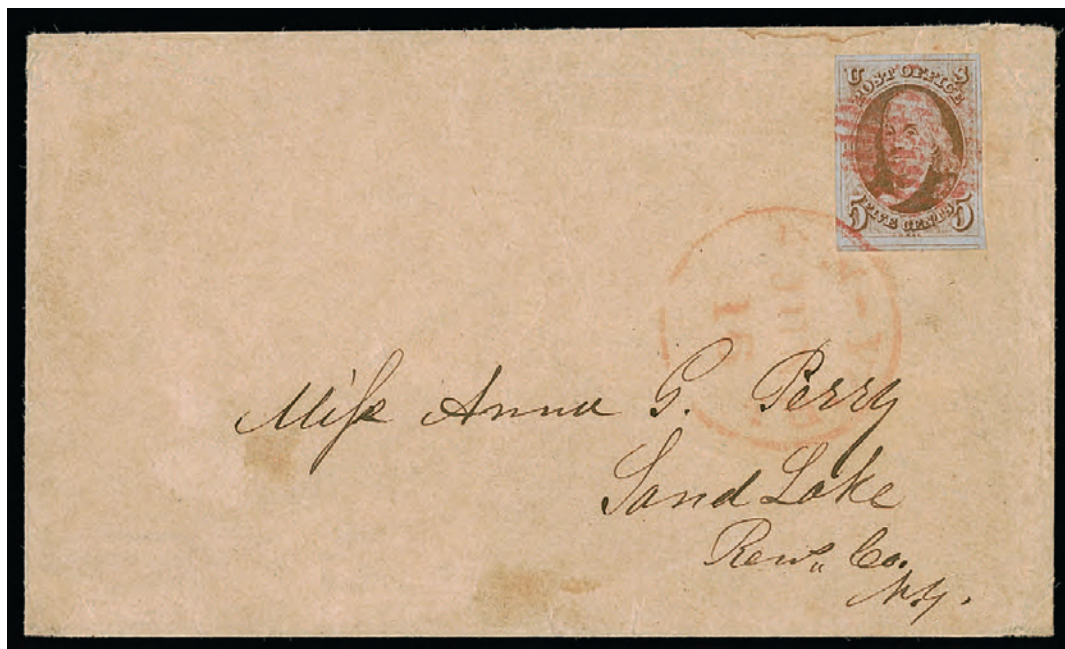 U S
POST OFFICE
5 FIVE CENTS 5
15
Miſs Anna G. Perry
Sand Lake
Rens. Co.
N.Y.